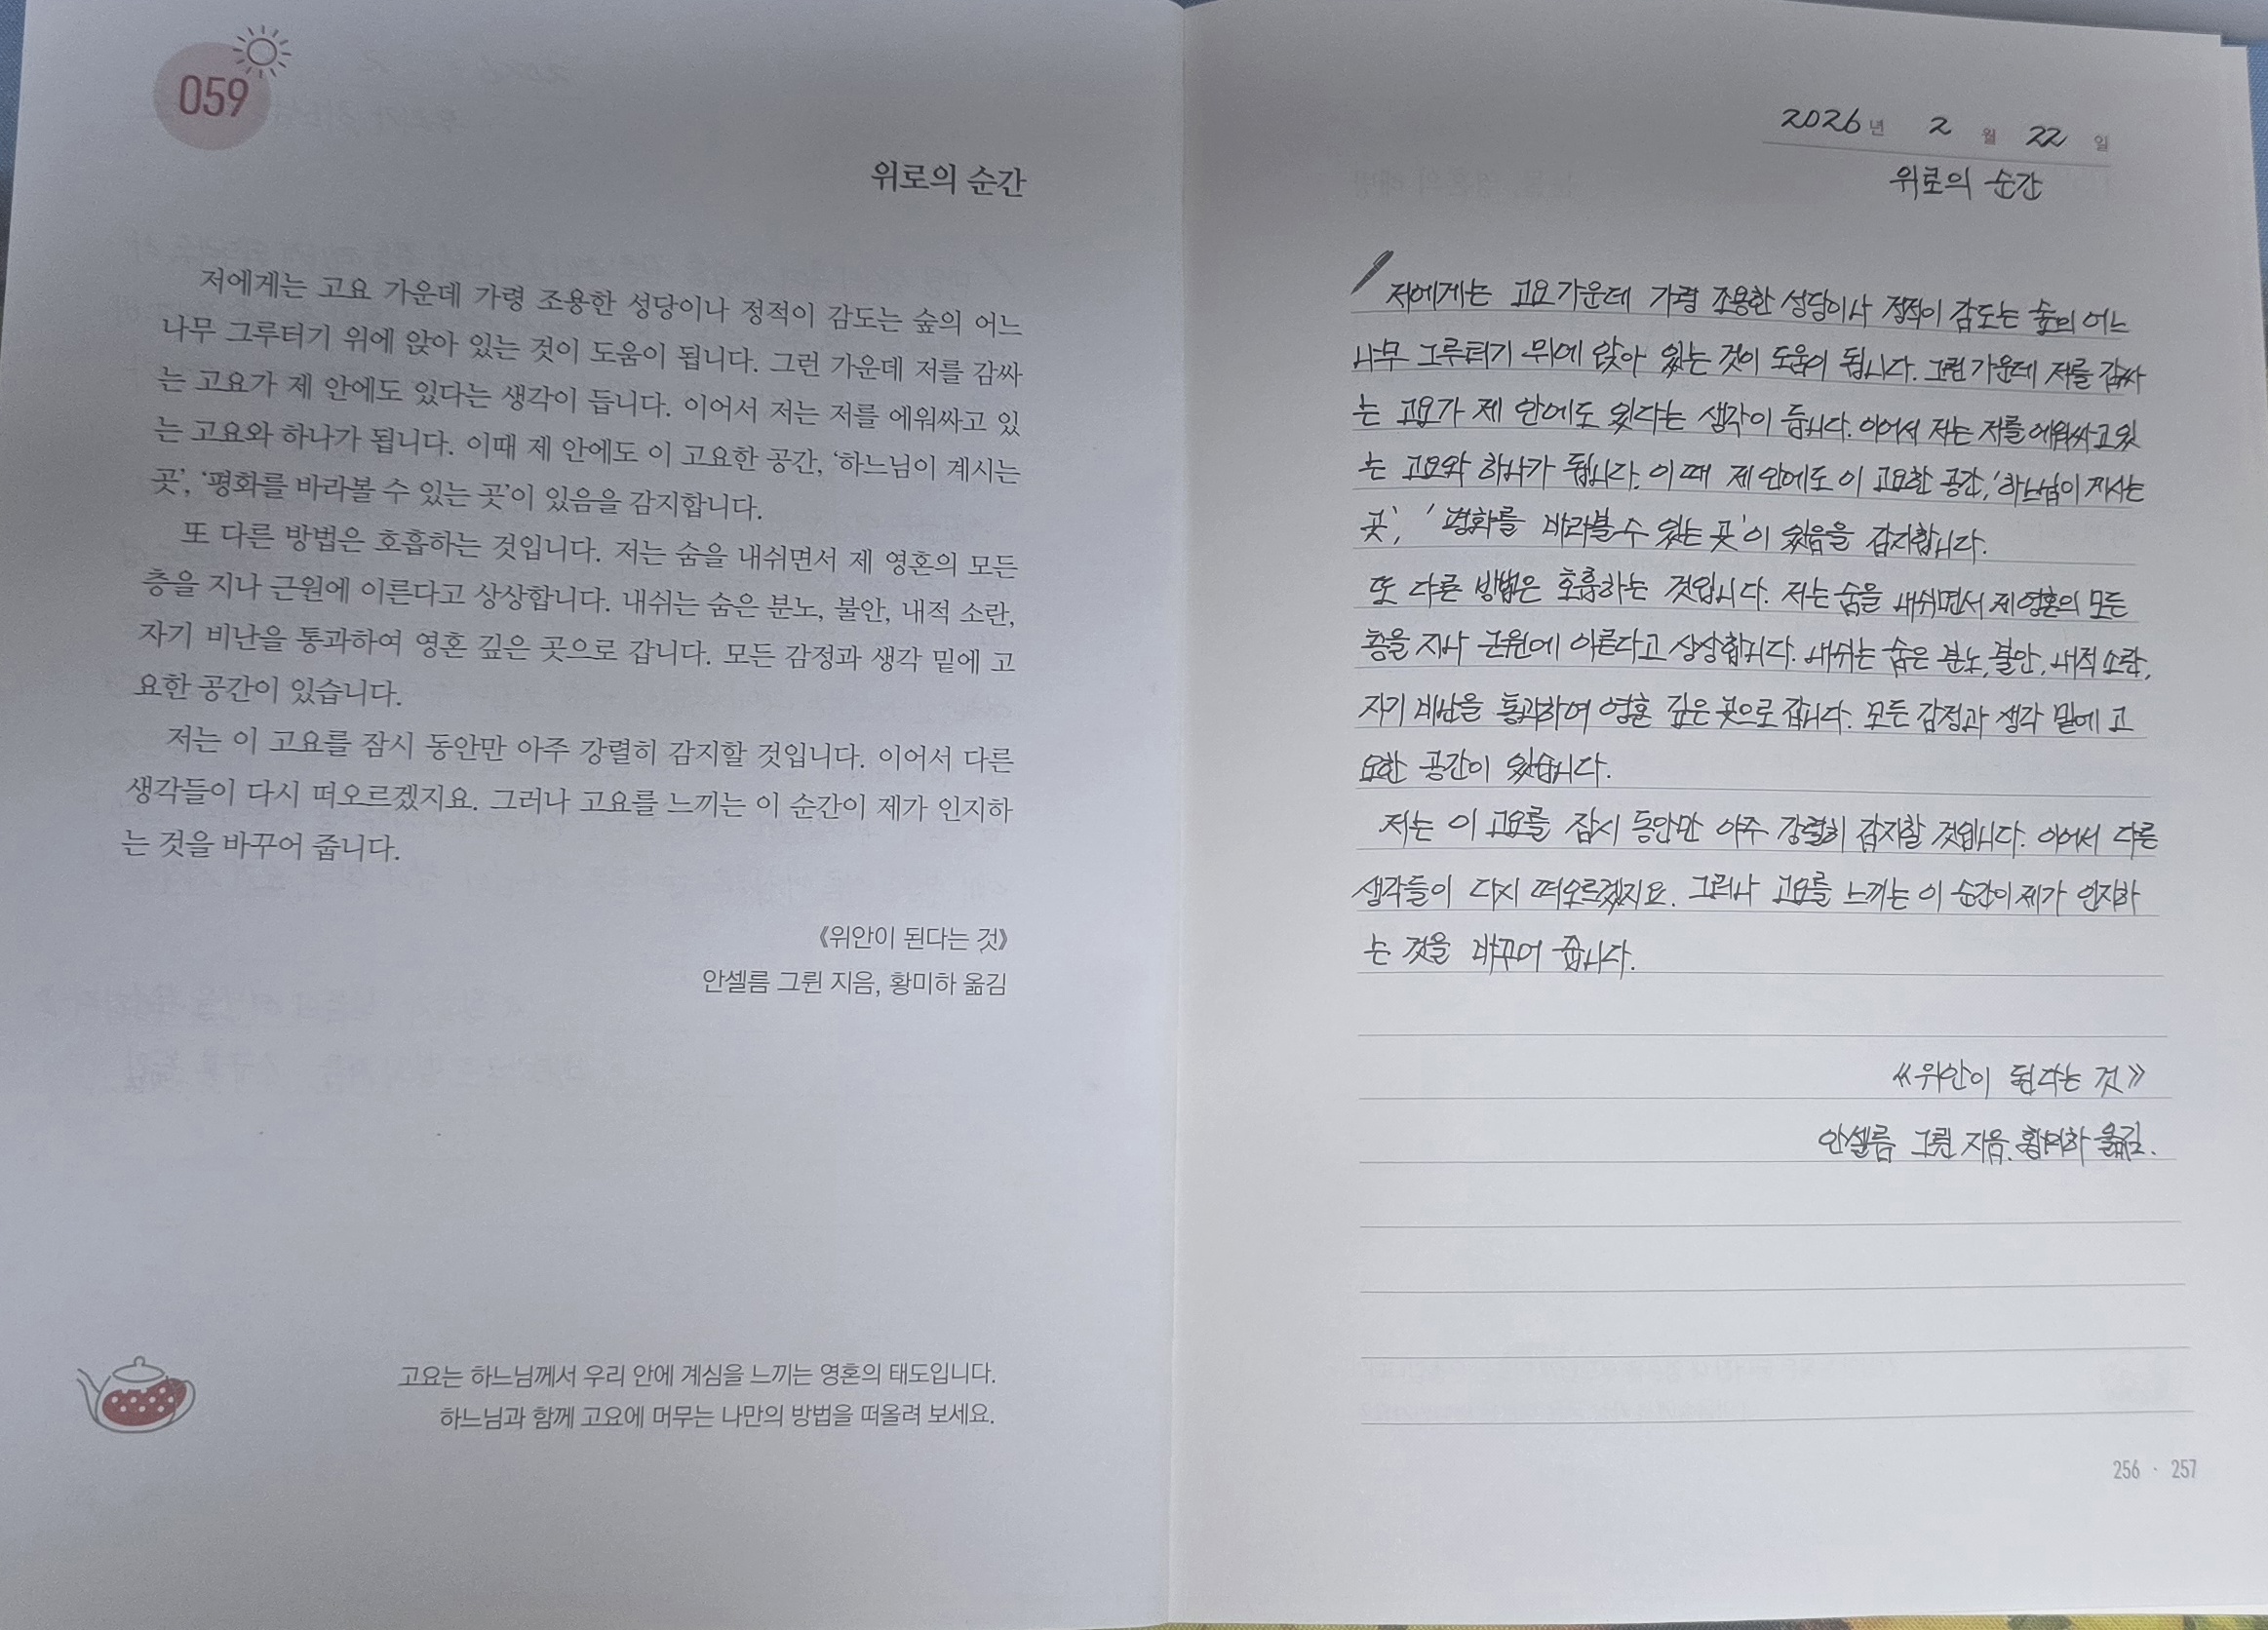 059
위로의 순간
저에게는 고요 가운데 가령 조용한 성당이나 정적이 감도는 숲의 어느
나무 그루터기 위에 앉아 있는 것이 도움이 됩니다. 그런 가운데 저를 감싸
는 고요가 제 안에도 있다는 생각이 듭니다. 이어서 저는 저를 에워싸고 있
는 고요와 하나가 됩니다. 이때 제 안에도 이 고요한 공간, ‘하느님이 계시는
곳’, ‘평화를 바라볼 수 있는 곳’이 있음을 감지합니다.
또 다른 방법은 호흡하는 것입니다. 저는 숨을 내쉬면서 제 영혼의 모든
층을 지나 근원에 이른다고 상상합니다. 내쉬는 숨은 분노, 불안, 내적 소란,
자기 비난을 통과하여 영혼 깊은 곳으로 갑니다. 모든 감정과 생각 밑에 고
요한 공간이 있습니다.
저는 이 고요를 잠시 동안만 아주 강렬히 감지할 것입니다. 이어서 다른
생각들이 다시 떠오르겠지요. 그러나 고요를 느끼는 이 순간이 제가 인지하
는 것을 바꾸어 줍니다.
《위안이 된다는 것》
안셀름 그륀 지음, 황미하 옮김
고요는 하느님께서 우리 안에 계심을 느끼는 영혼의 태도입니다.
하느님과 함께 고요에 머무는 나만의 방법을 떠올려 보세요.
2026년 2월 22일
위로의 순간
저에게는 고요 가운데 가령 조용한 성당이나 정적이 감도는 숲의 어느
나무 그루터기 위에 앉아 있는 것이 도움이 됩니다. 그런 가운데 저를 감싸
는 고요가 제 안에도 있다는 생각이 듭니다. 이어서 저는 저를 에워싸고 있
는 고요와 하나가 됩니다. 이때 제 안에도 이 고요한 공간, '하느님이 계시는
곳', '평화를 바라볼 수 있는 곳'이 있음을 감지합니다.
또 다른 방법은 호흡하는 것입니다. 저는 숨을 내쉬면서 제 영혼의 모든
층을 지나 근원에 이른다고 상상합니다. 내쉬는 숨은 분노, 불안, 내적 소란,
자기 비난을 통과하여 영혼 깊은 곳으로 갑니다. 모든 감정과 생각 밑에 고
요한 공간이 있습니다.
저는 이 고요를 잠시 동안만 아주 강렬히 감지할 것입니다. 이어서 다른
생각들이 다시 떠오르겠지요. 그러나 고요를 느끼는 이 순간이 제가 인지하
는 것을 바꾸어 줍니다.
《위안이 된다는 것》
안셀름 그륀 지음. 황미하 옮김.
256 · 257